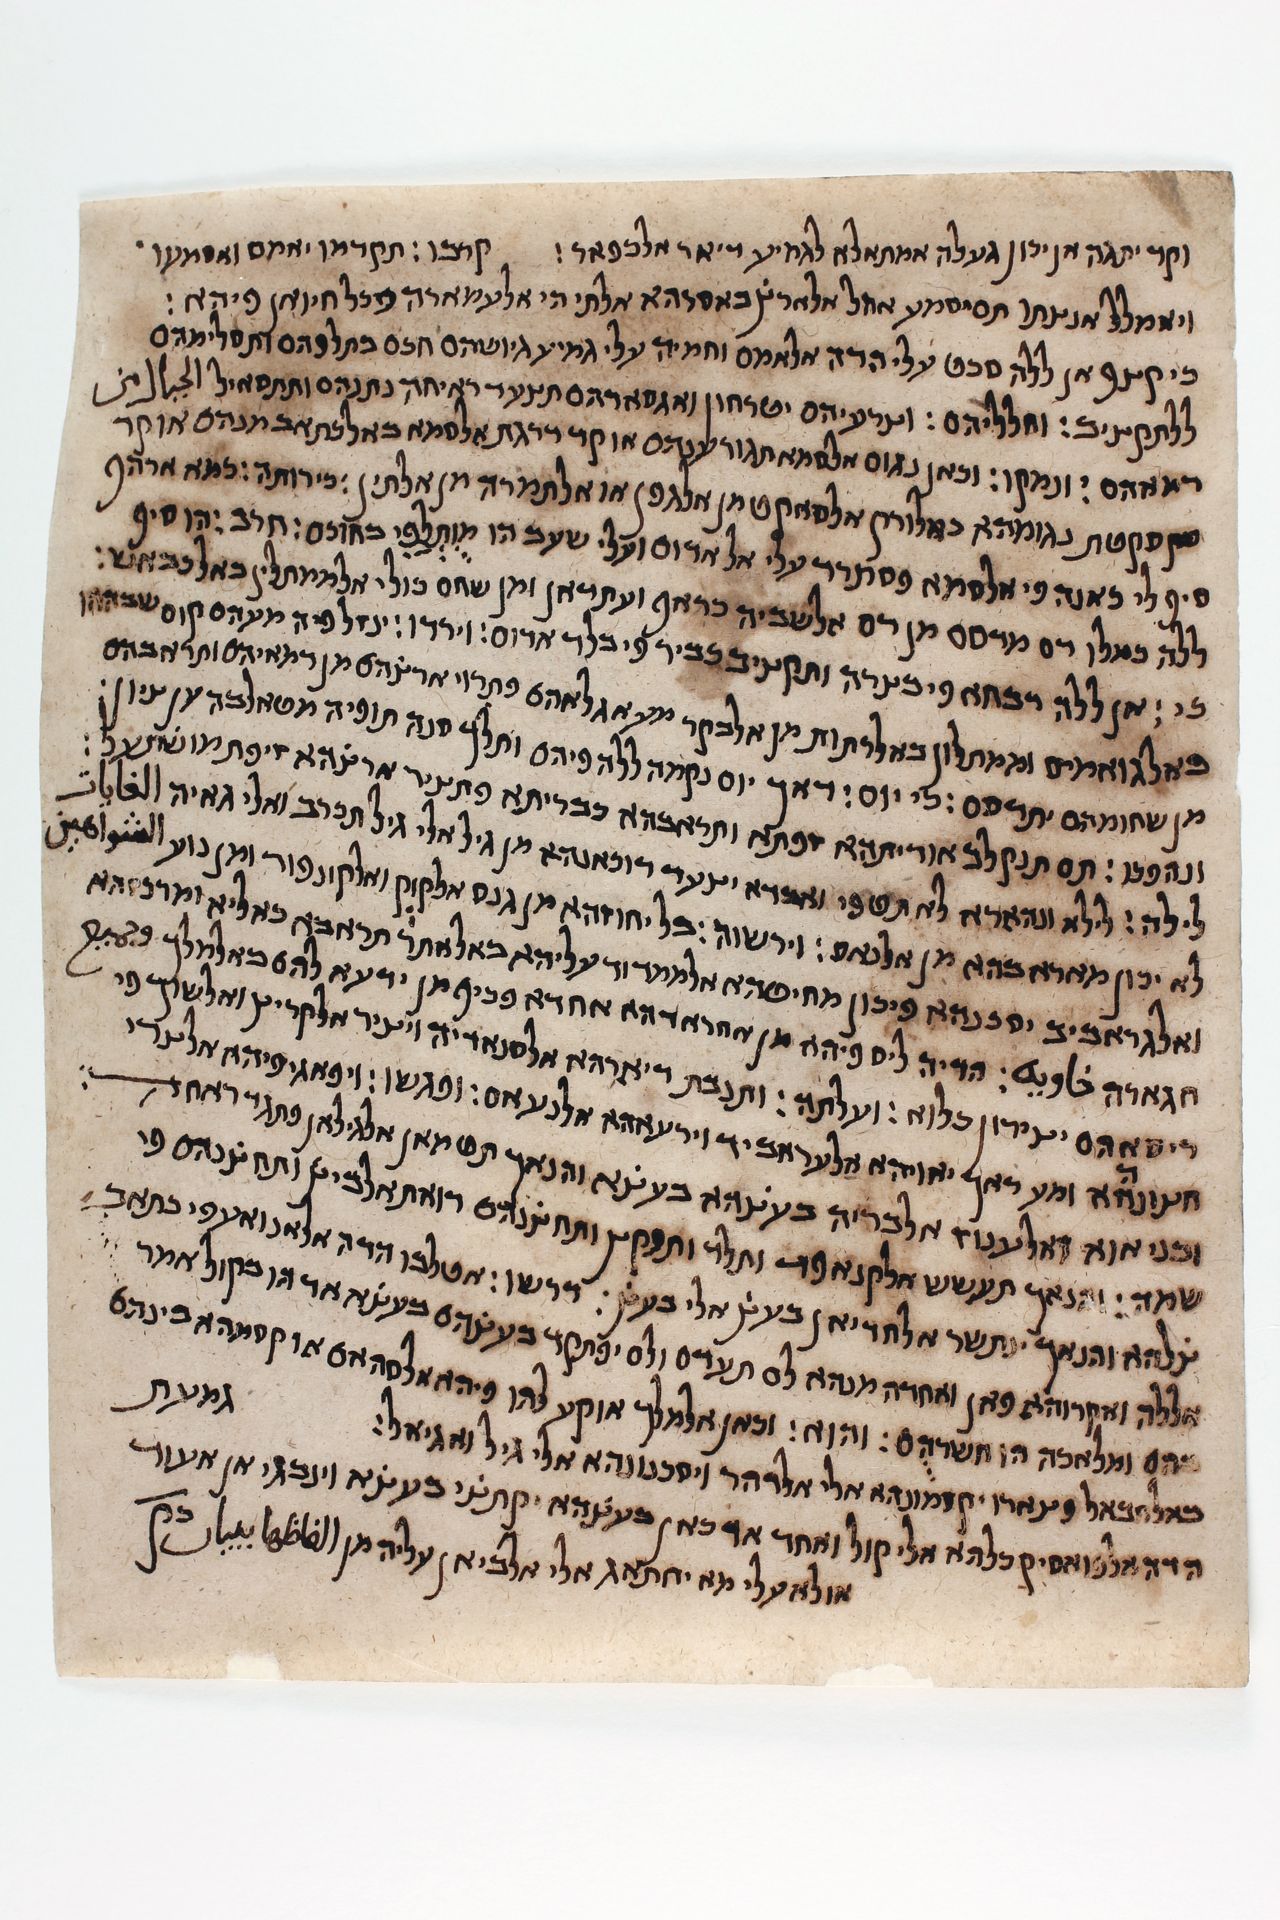 וקד יתגה אן יכון געלה אמתאלא לגמיע דיאר אלכפאר : קרבו : תקדמו יאמם ואסמעו
ויאמלל אנצתו תם יסמע אהל אלארץ באסרהא אלתי הי אלעמארה וכל חיואן פיהא :
כי קצף אן ללה סכט עלי הדה אלאמם וחמיה עלי גמיע גיושהם חכם בתלפהם ותסלימהם
ללתקציב : וחלליהם : וצרעיהם יטרחון ואגסאדהם תצעד ראיחה נתנהם ותתסאיל الجبال من
דמאהם : ונמקו : וכאן נגום אלסמא תגור ענהם או קד דרגת אלסמא כאלכתאב מנהם או קד
סקטת נגומהא כאלורק אלסאקט מן אלגפן או אלתמרה מן אלתין : כי רותה : כמא ארהף
סיפי כאנה פי אלסמא פסתרד עלי אל אדום ועלי שעב הו בחכם : חרב : הו סיף
ללה כמלו דם מדסם מן דם אלשביה כראף ועתדאן ומן שחם כולי אלממתלין באלכבאש :
כי : אן ללה דבחא פי בצרה ותקציב כביר פי בלד אדום : וירדו : ינזל פיה מעהם קום
באלגואמיס וממתלון באלרתות מן אלבקר מע אגלאהם פתרוי ארצהם מן דמאיהם ותראבהם
מן שחומהם יתדסם : כי יום : דאך יום נקמה ללה פיהם ותלך סנה תופיה מטאלבה ען ציון :
ונהפכו : תם תנקלב אוריתהא זפתא ותראבהא כבריתא פתציר ארצהא זיפת משתעל :
לילה : לילא ונהארא לא תטפי ואבדא יצעד דוכאנהא מן גיל אלי גיל תכרב ואלי גאיה الغايات
לא יכון מאר בהא מן אלנאס : וירשוה : בל יחוזהא מן גנס אלקוק ואלקונפוד ומן נוע
ואלגראביב יסכנהא פיכון מחיטהא אלממדוד עליהא תראבא כאליא ומרכזהא
חגארה خاوية : חדיה ליס פיהא מן אחרארהא אחדא פכיף מן ידעא להם באלמלך
ריסאהם יצירון כלוא : ועלתה : ותנבת דיארהא אלסנאדיה ויציר אלקריץ ואלשוך פי
חצונהא ומע דאך יאויהא אלעראביד וירעאהא אלנעאם : ופגשו : ויפאגי פיהא אלצדי
ובני אוא ואלענוז אלבריה בעצהא בעצא והנאך תטמאן אלגילאן פתגד ראחה :
שמה : והנאך תעשש אלקנאפד ותלד ותפקץ ותחצנהם דואת אלביץ ותחצנהם פי
צלהא והנאך ינתשר אלחדיאן בעץ אלי בעץ : דרשו : אטלבו הדה אלאנואע פי כתאב
אללה ואקרוהא פאן ואחדה מנהא לם תעדם ולם יפתקד בעצהם בעצא אד הו בקול אמר
בהם ומלאכה הו חשרהם : והוא : וכאן אלמלך אוקע להו פיהא אלסהאם או קסמהא בינהם
באלחבאל פצארו יקסמונהא אלי אלדהר ויסכנונהא אלי גיל ואגיאל : גמעת
הדה אלפואסיק כלהא אלי קול ואחד אד כאן בעצהא יקתצי בעצא וינבגי אן אעוד
אולא עלי מא יחתאג אלי אלביאן עליה מן الفاظها ببيان